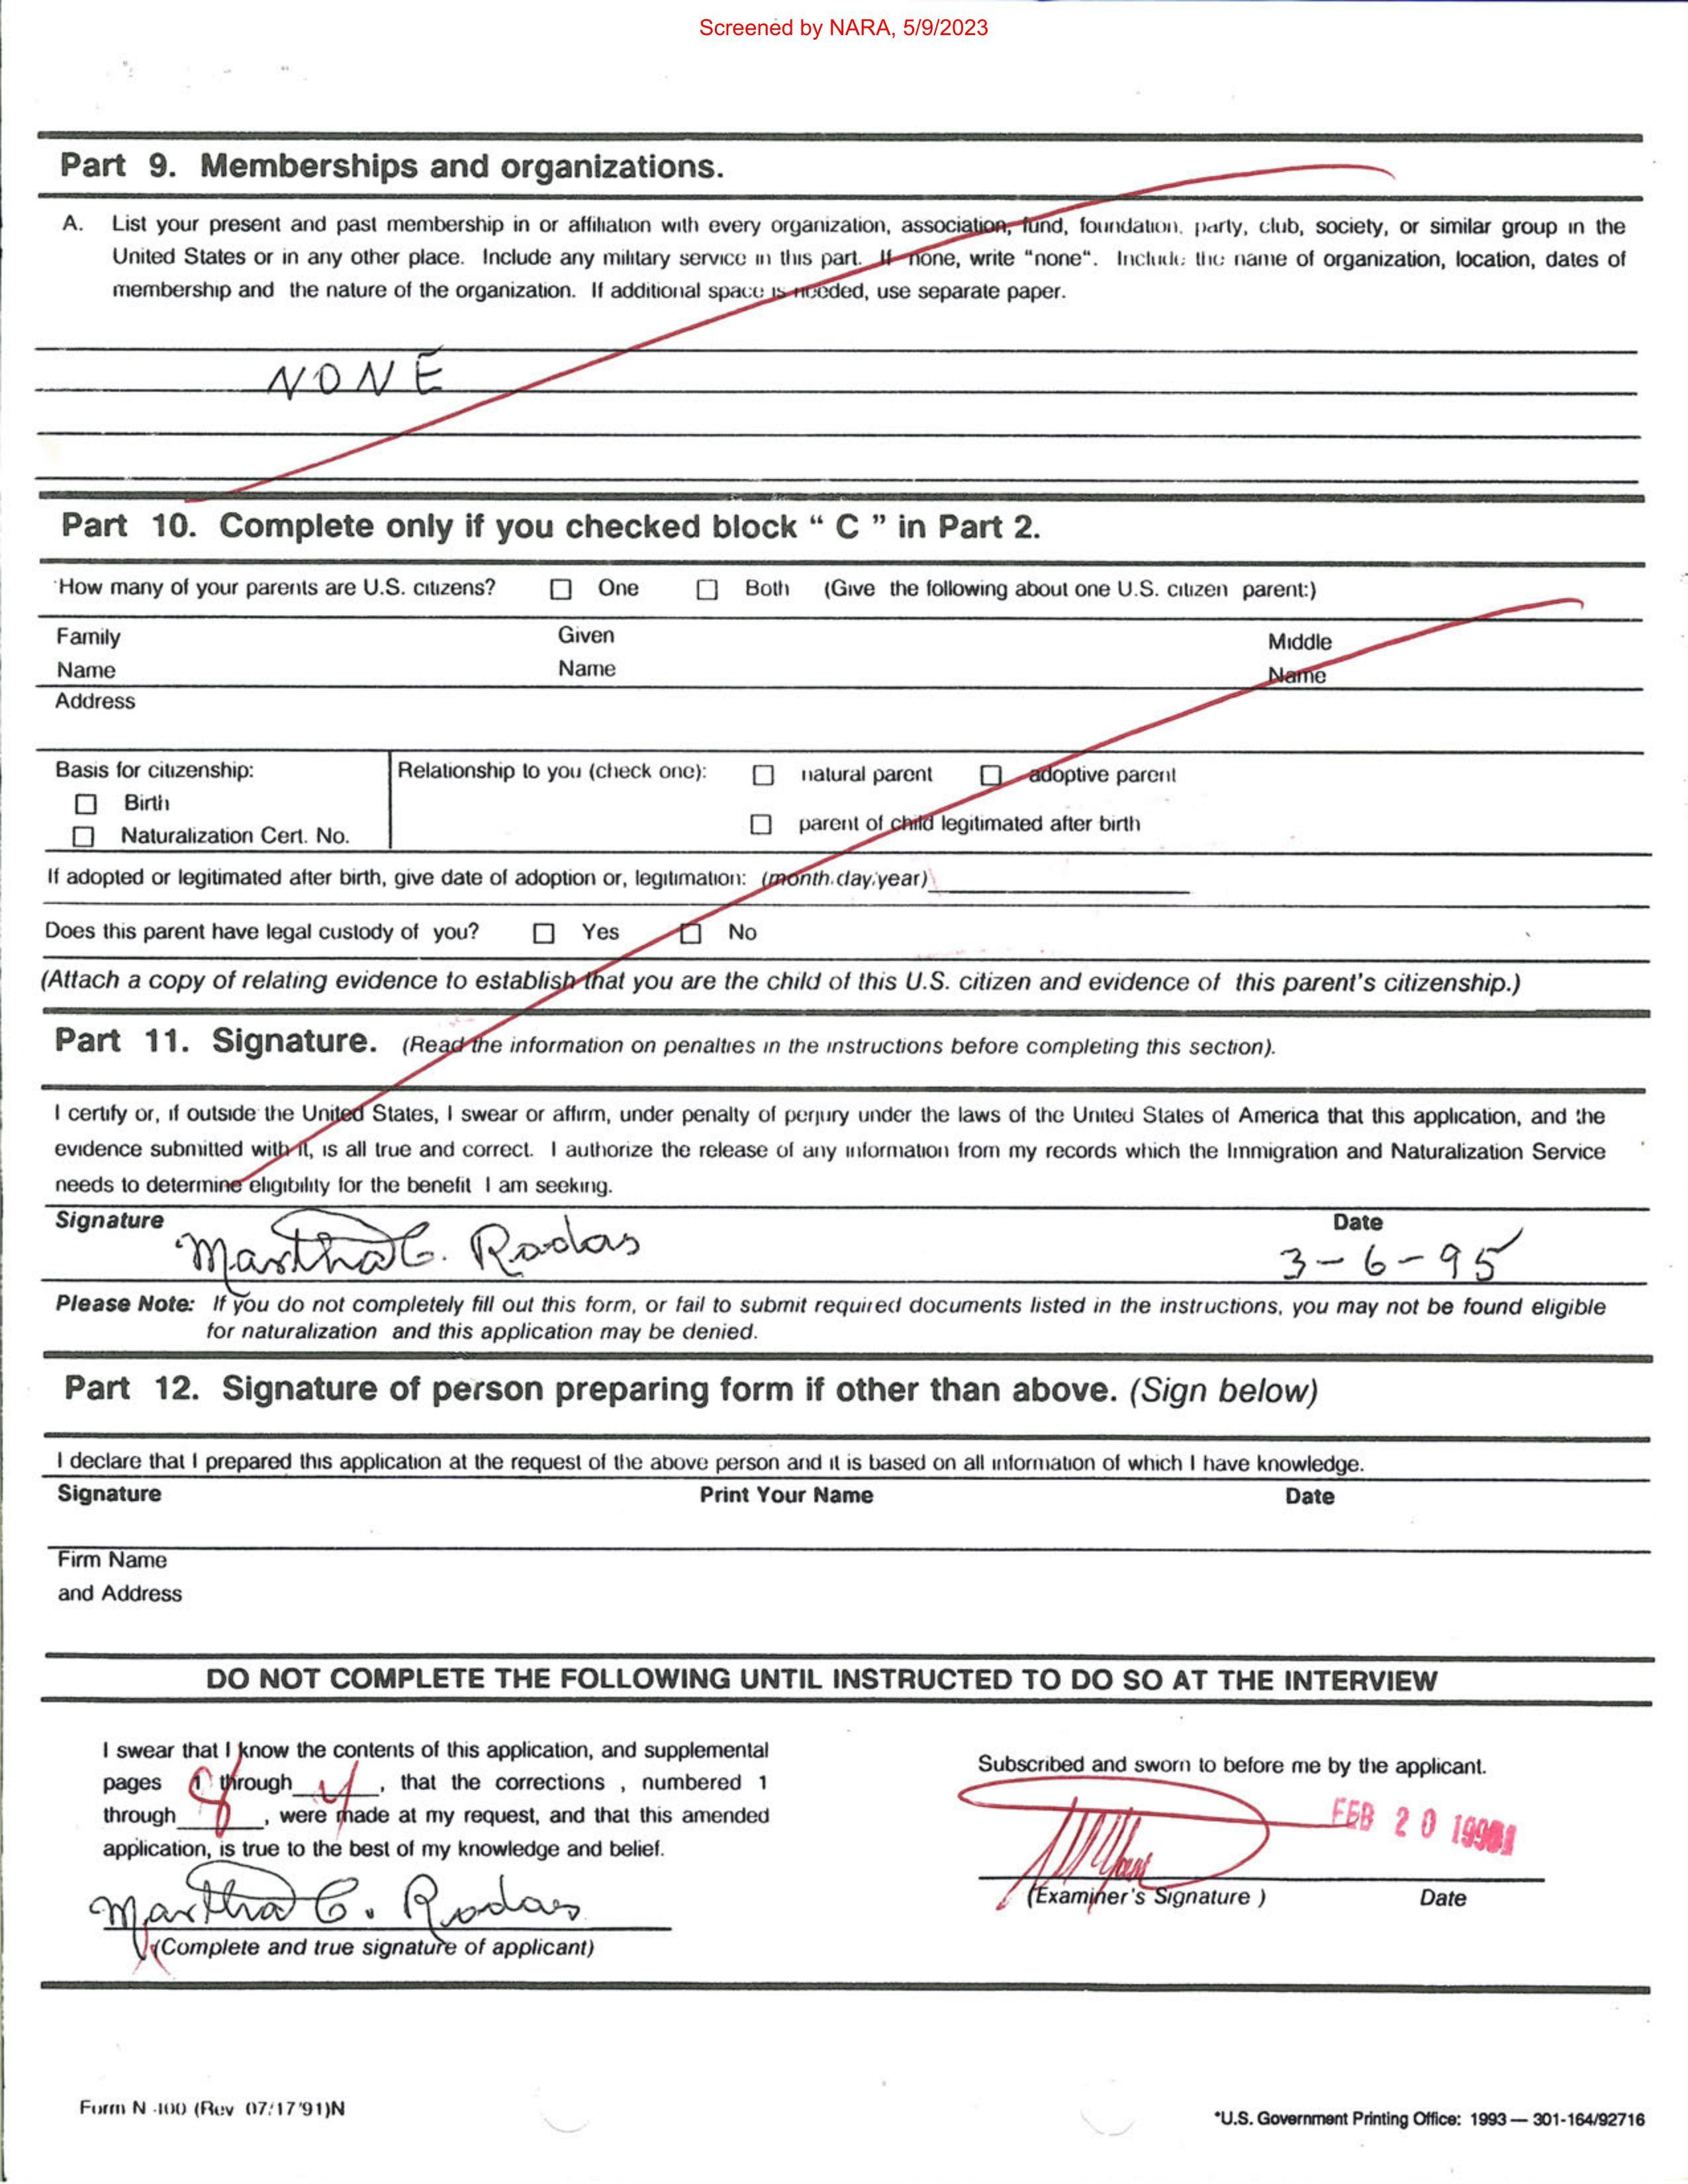 Screened by NARA, 5/9/2023
Part 9. Memberships and organizations.
A. List your present and past membership in or affiliation with every organization, association, fund, foundation, party, club, society, or similar group in the
United States or in any other place. Include any military service in this part. If none, write "none". Include the name of organization, location, dates of
membership and the nature of the organization. If additional space is needed, use separate paper.
NONE
Part 10. Complete only if you checked block " C " in Part 2.
How many of your parents are U.S. citizens? ☐ One ☐ Both (Give the following about one U.S. citizen parent:)
Family Given Middle
Name Name Name
Address
Basis for citizenship: Relationship to you (check one): ☐ natural parent ☐ adoptive parent
☐ Birth
☐ parent of child legitimated after birth
☐ Naturalization Cert. No.
If adopted or legitimated after birth, give date of adoption or, legitimation: (month.day.year)
Does this parent have legal custody of you? ☐ Yes ☐ No
(Attach a copy of relating evidence to establish that you are the child of this U.S. citizen and evidence of this parent's citizenship.)
Part 11. Signature. (Read the information on penalties in the instructions before completing this section).
I certify or, if outside the United States, I swear or affirm, under penalty of perjury under the laws of the United States of America that this application, and the
evidence submitted with it, is all true and correct. I authorize the release of any information from my records which the Immigration and Naturalization Service
needs to determine eligibility for the benefit I am seeking.
Signature Date
Martha C. Rodas 3-6-95
Please Note: If you do not completely fill out this form, or fail to submit required documents listed in the instructions, you may not be found eligible
for naturalization and this application may be denied.
Part 12. Signature of person preparing form if other than above. (Sign below)
I declare that I prepared this application at the request of the above person and it is based on all information of which I have knowledge.
Signature Print Your Name Date
Firm Name
and Address
DO NOT COMPLETE THE FOLLOWING UNTIL INSTRUCTED TO DO SO AT THE INTERVIEW
I swear that I know the contents of this application, and supplemental
pages 1 through , that the corrections , numbered 1
through , were made at my request, and that this amended
application, is true to the best of my knowledge and belief.
Martha C. Rodas
(Complete and true signature of applicant)
Subscribed and sworn to before me by the applicant.
FEB 20
(Examiner's Signature ) Date
Form N-400 (Rev 07/17/91)N
*U.S. Government Printing Office: 1993 — 301-164/92716